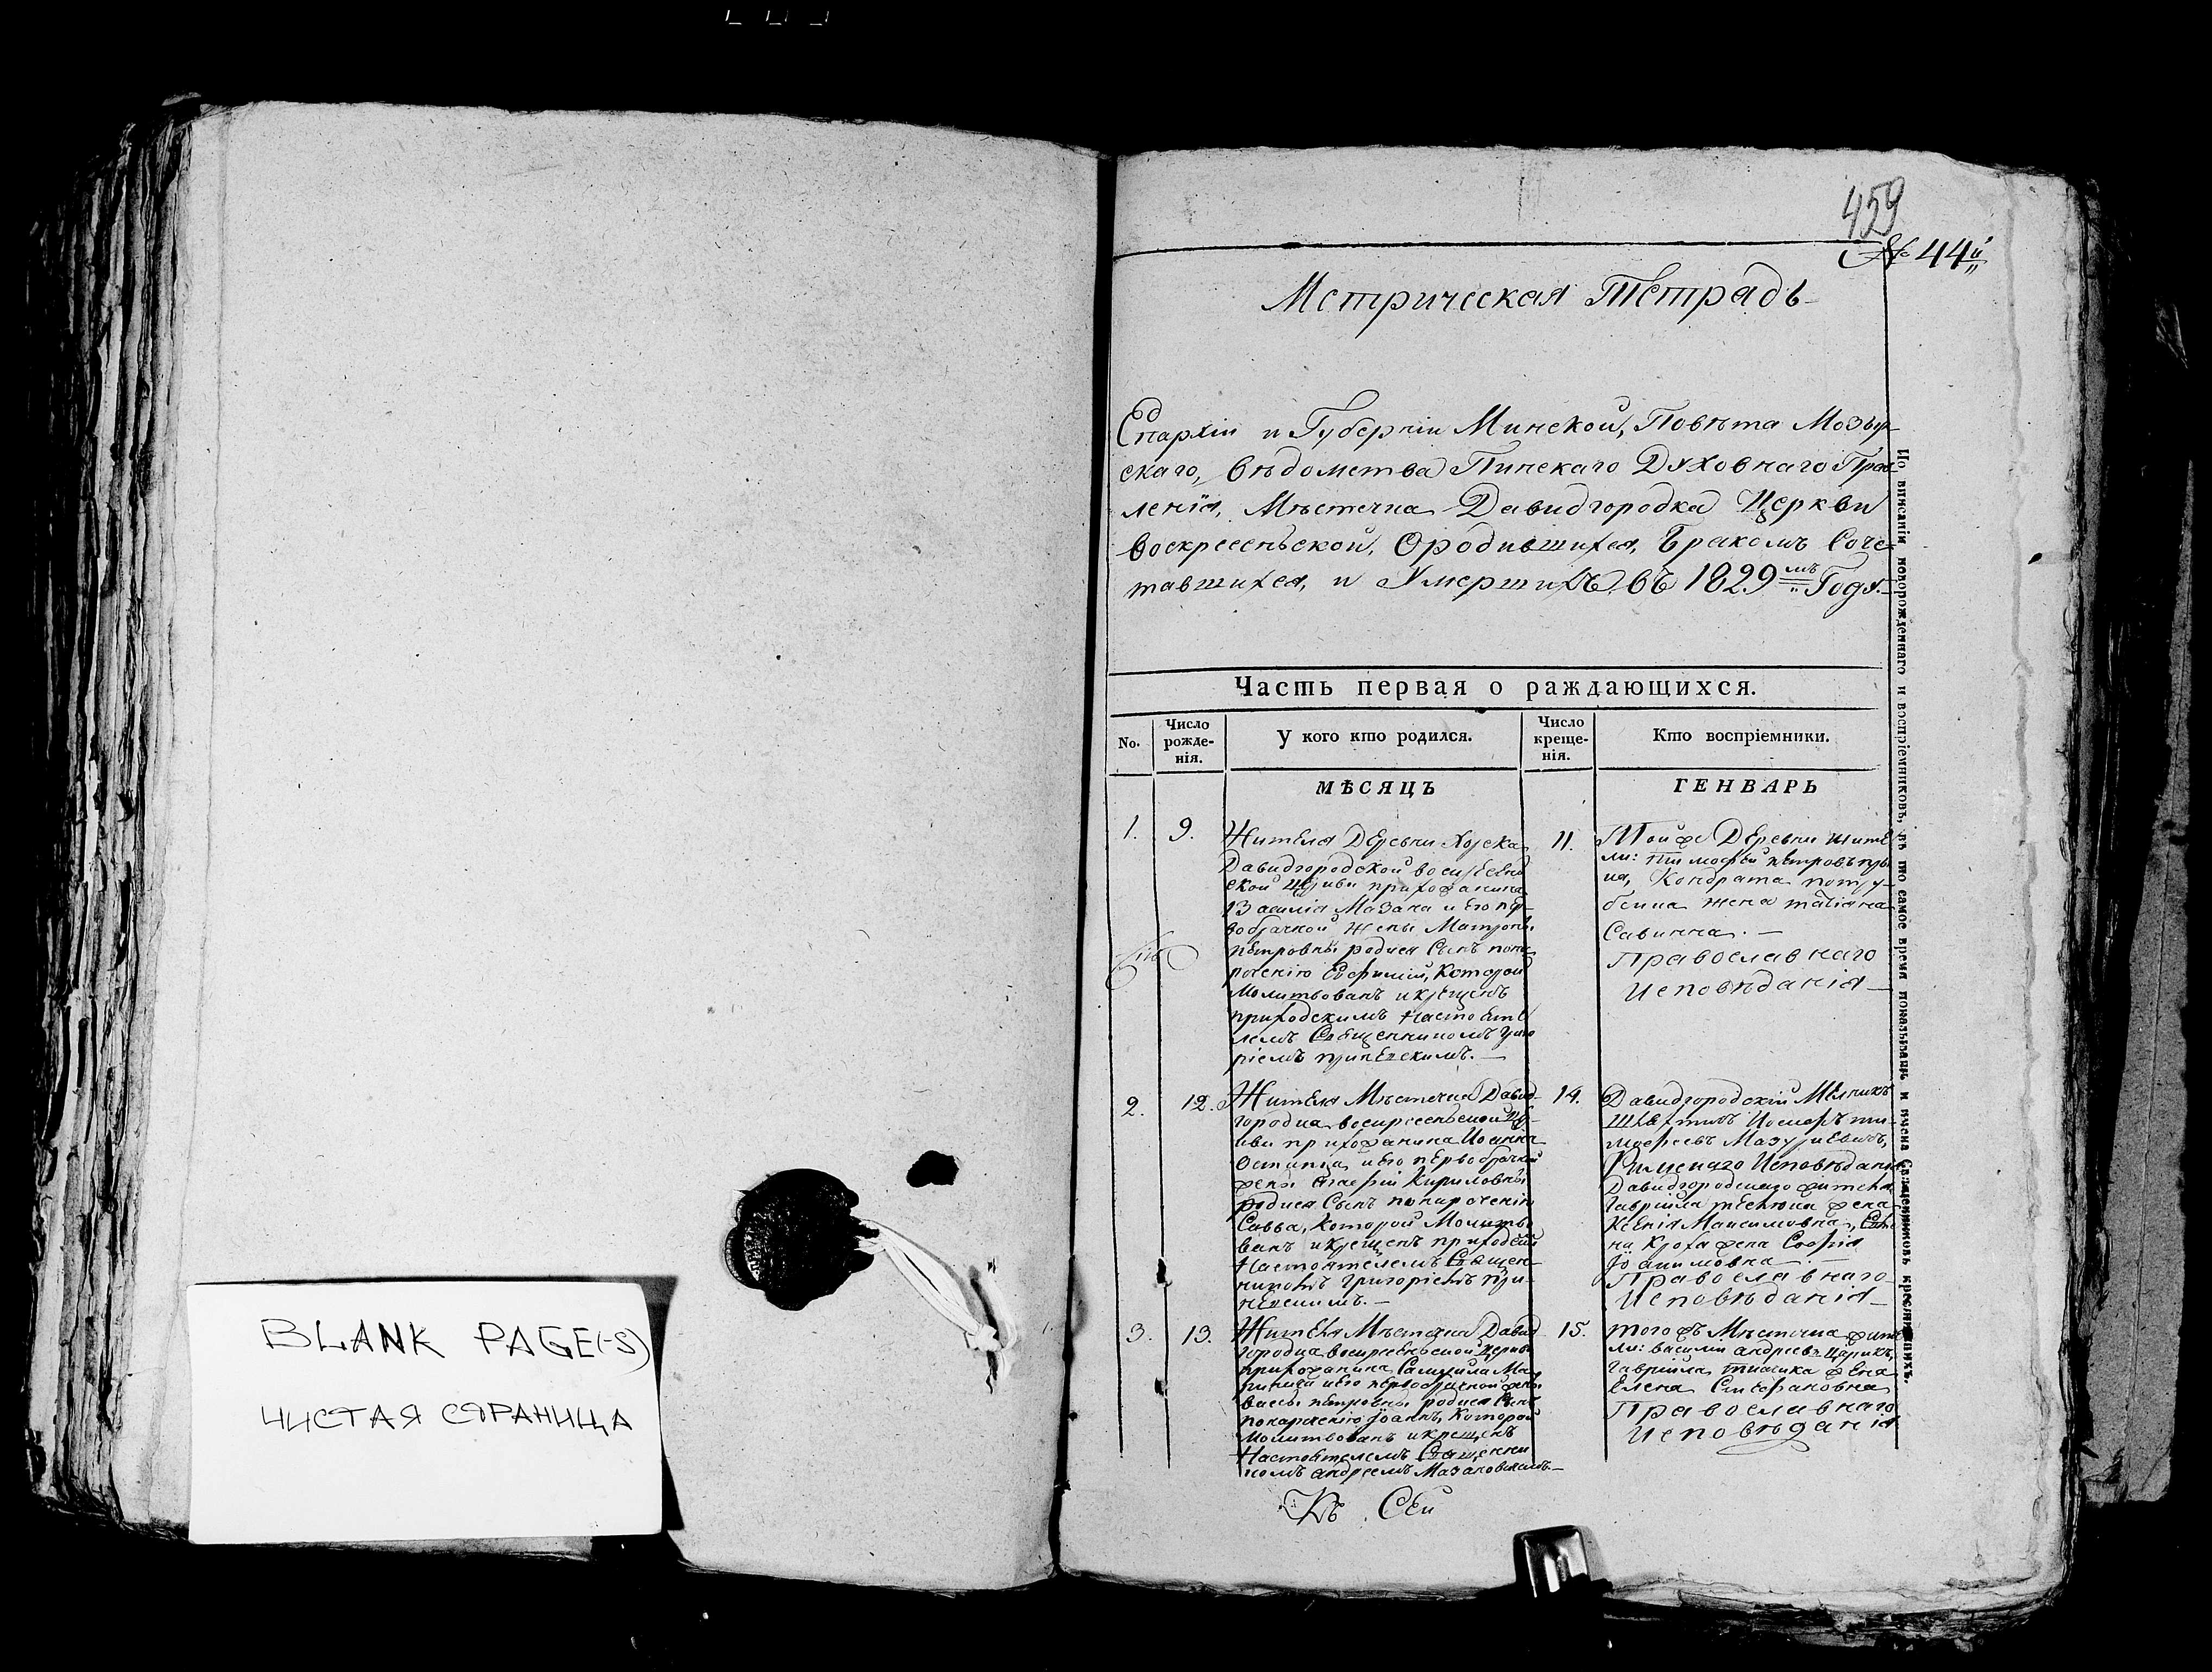 BLANK PAGE(-S)
ЧИСТАЯ СТРАНИЦА
459
№ 44й
Метрическая Тетрадь
Епархіи и Губерніи Минской, Повѣта Мозыр-
скаго, вѣдомства Пинскаго Духовнаго Прав-
ленія, Мѣстечка Давидгородка Церкви
Воскресеньской, О родившихся, Бракомъ Соче-
тавшихся, и Умершихъ въ 1829мъ Году.
Часть первая о раждающихся.
No.
Число рожде-нія.
У кого кто родился.
Число креще-нія.
Кто воспріемники.
МѢСЯЦЪ
ГЕНВАРЬ
1.
9.
Жителя Деревни Хорска
Давидгородской Воскресень
ской Церкви прихожанина
Василія Мазана и Его пер-
вобрачной жены Матроны
Петровны родися Сынъ пона-
реченію Евфимій, Которой
Молитвованъ и крещенъ
приходскимъ Настояте
лемъ Священникомъ Григо
ріемъ
11.
Той же Деревни жите
ли: Тимофей Петровъ
Кондрата
жена Татіана
Саввична. —
Православнаго
Исповѣданія —
2.
12.
Жителя Мѣстечка Давид-
городка Воскресеньской Цер-
кви прихожанина Иоанна
и Его первобрачной
жены Кириловны
родися Сынъ понареченію
Савва, Которой Молитво
ванъ и крещенъ приходскимъ
Настоятелемъ Священ-
никомъ Григоріемъ
14.
Давидгородскій Мельникъ
Шляхтичъ Иосифъ Ти-
мофеевъ
Римскаго Исповѣданія
Давидгородскаго жителя
Гавріила жена
Ксенія Максимовна,
жена Софія
Іоакимовна. —
Православнаго
Исповѣданія —
3.
13.
Жителя Мѣстечка Давид
городка Воскресеньской Церкви
прихожанина Самуила
и Его первобрачной жены
Петровны родися Сынъ
понареченію Іоаннъ, Которой
Молитвованъ и крещенъ
Настоятелемъ Священни
комъ Андреемъ Мазановскимъ. —
15.
Того жъ Мѣстечка жите
ли: Василій Андреевъ Царикъ,
Гавріила жена
Елена Стефановна
Православнаго
Исповѣданія
Къ Сей
По вписаніи новорожденнаго и воспріемниковъ, въ то самое время показывать и имена Священниковъ крестившихъ.